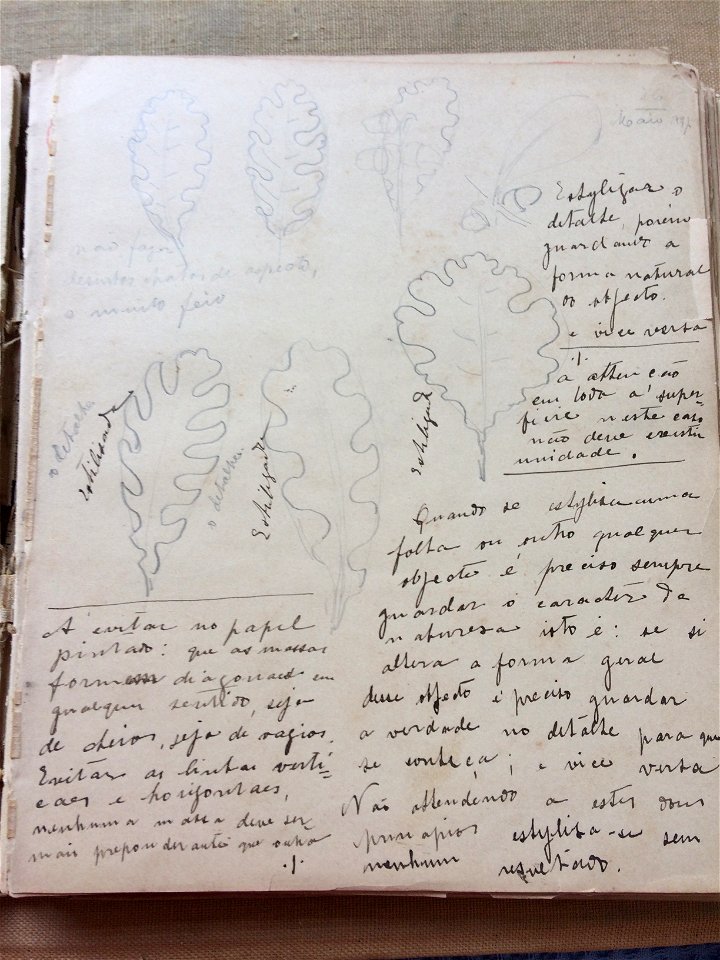 26
Maio
Estylizar o
detalhe, porém
guardando a
forma natural
do objecto.
e vice versa
não façam
de aspecto,
e muito feio
a attenção
em toda a super-
ficie neste caso
não deve existir
unidade.
o detalhe
Estilisado
o detalhe
Estilizado
Estilizado
Quando se estylisa uma
folha ou outro qualquer
objecto é preciso sempre
guardar o caracter da
natureza isto é: se si
altera a forma geral
desse objecto é preciso guardar
a verdade no detalhe para que
se conheça; e vice versa
Não attendendo a estes dous
principios estylisa-se sem
nenhum resultado.
A evitar no papel
pintado: que as massas
formem diagonaes em
qualquer sentido, seja
de cheios, seja de vazios.
Evitar as linhas verti-
caes e horizontaes,
nenhuma massa deve ser
mais preponderante que outra